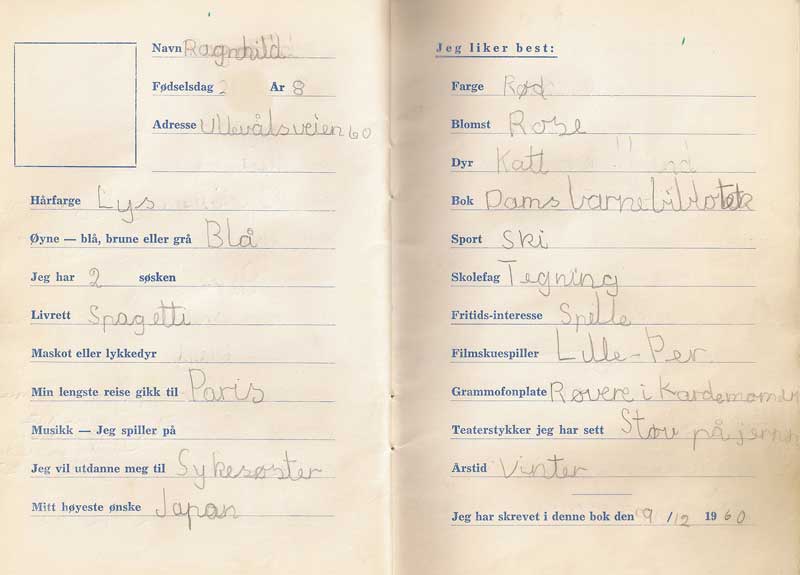 Navn Ragnhild
Fødselsdag 2 År 8
Adresse Ullevålsveien 60
Hårfarge Lys
Øyne — blå, brune eller grå Blå
Jeg har 2 søsken
Livrett Spagetti
Maskot eller lykkedyr
Min lengste reise gikk til Paris
Musikk — Jeg spiller på
Jeg vil utdanne meg til Sykesøster
Mitt høyeste ønske Japan
Jeg liker best:
Farge Rød
Blomst Rose
Dyr Katt
Bok Dams barnebiblotek
Sport Ski
Skolefag Tegning
Fritids-interesse Spille
Filmskuespiller Lille-Per
Grammofonplate Røvere i Kardemomm
Teaterstykker jeg har sett på
Årstid Vinter
Jeg har skrevet i denne bok den 9/12 1960